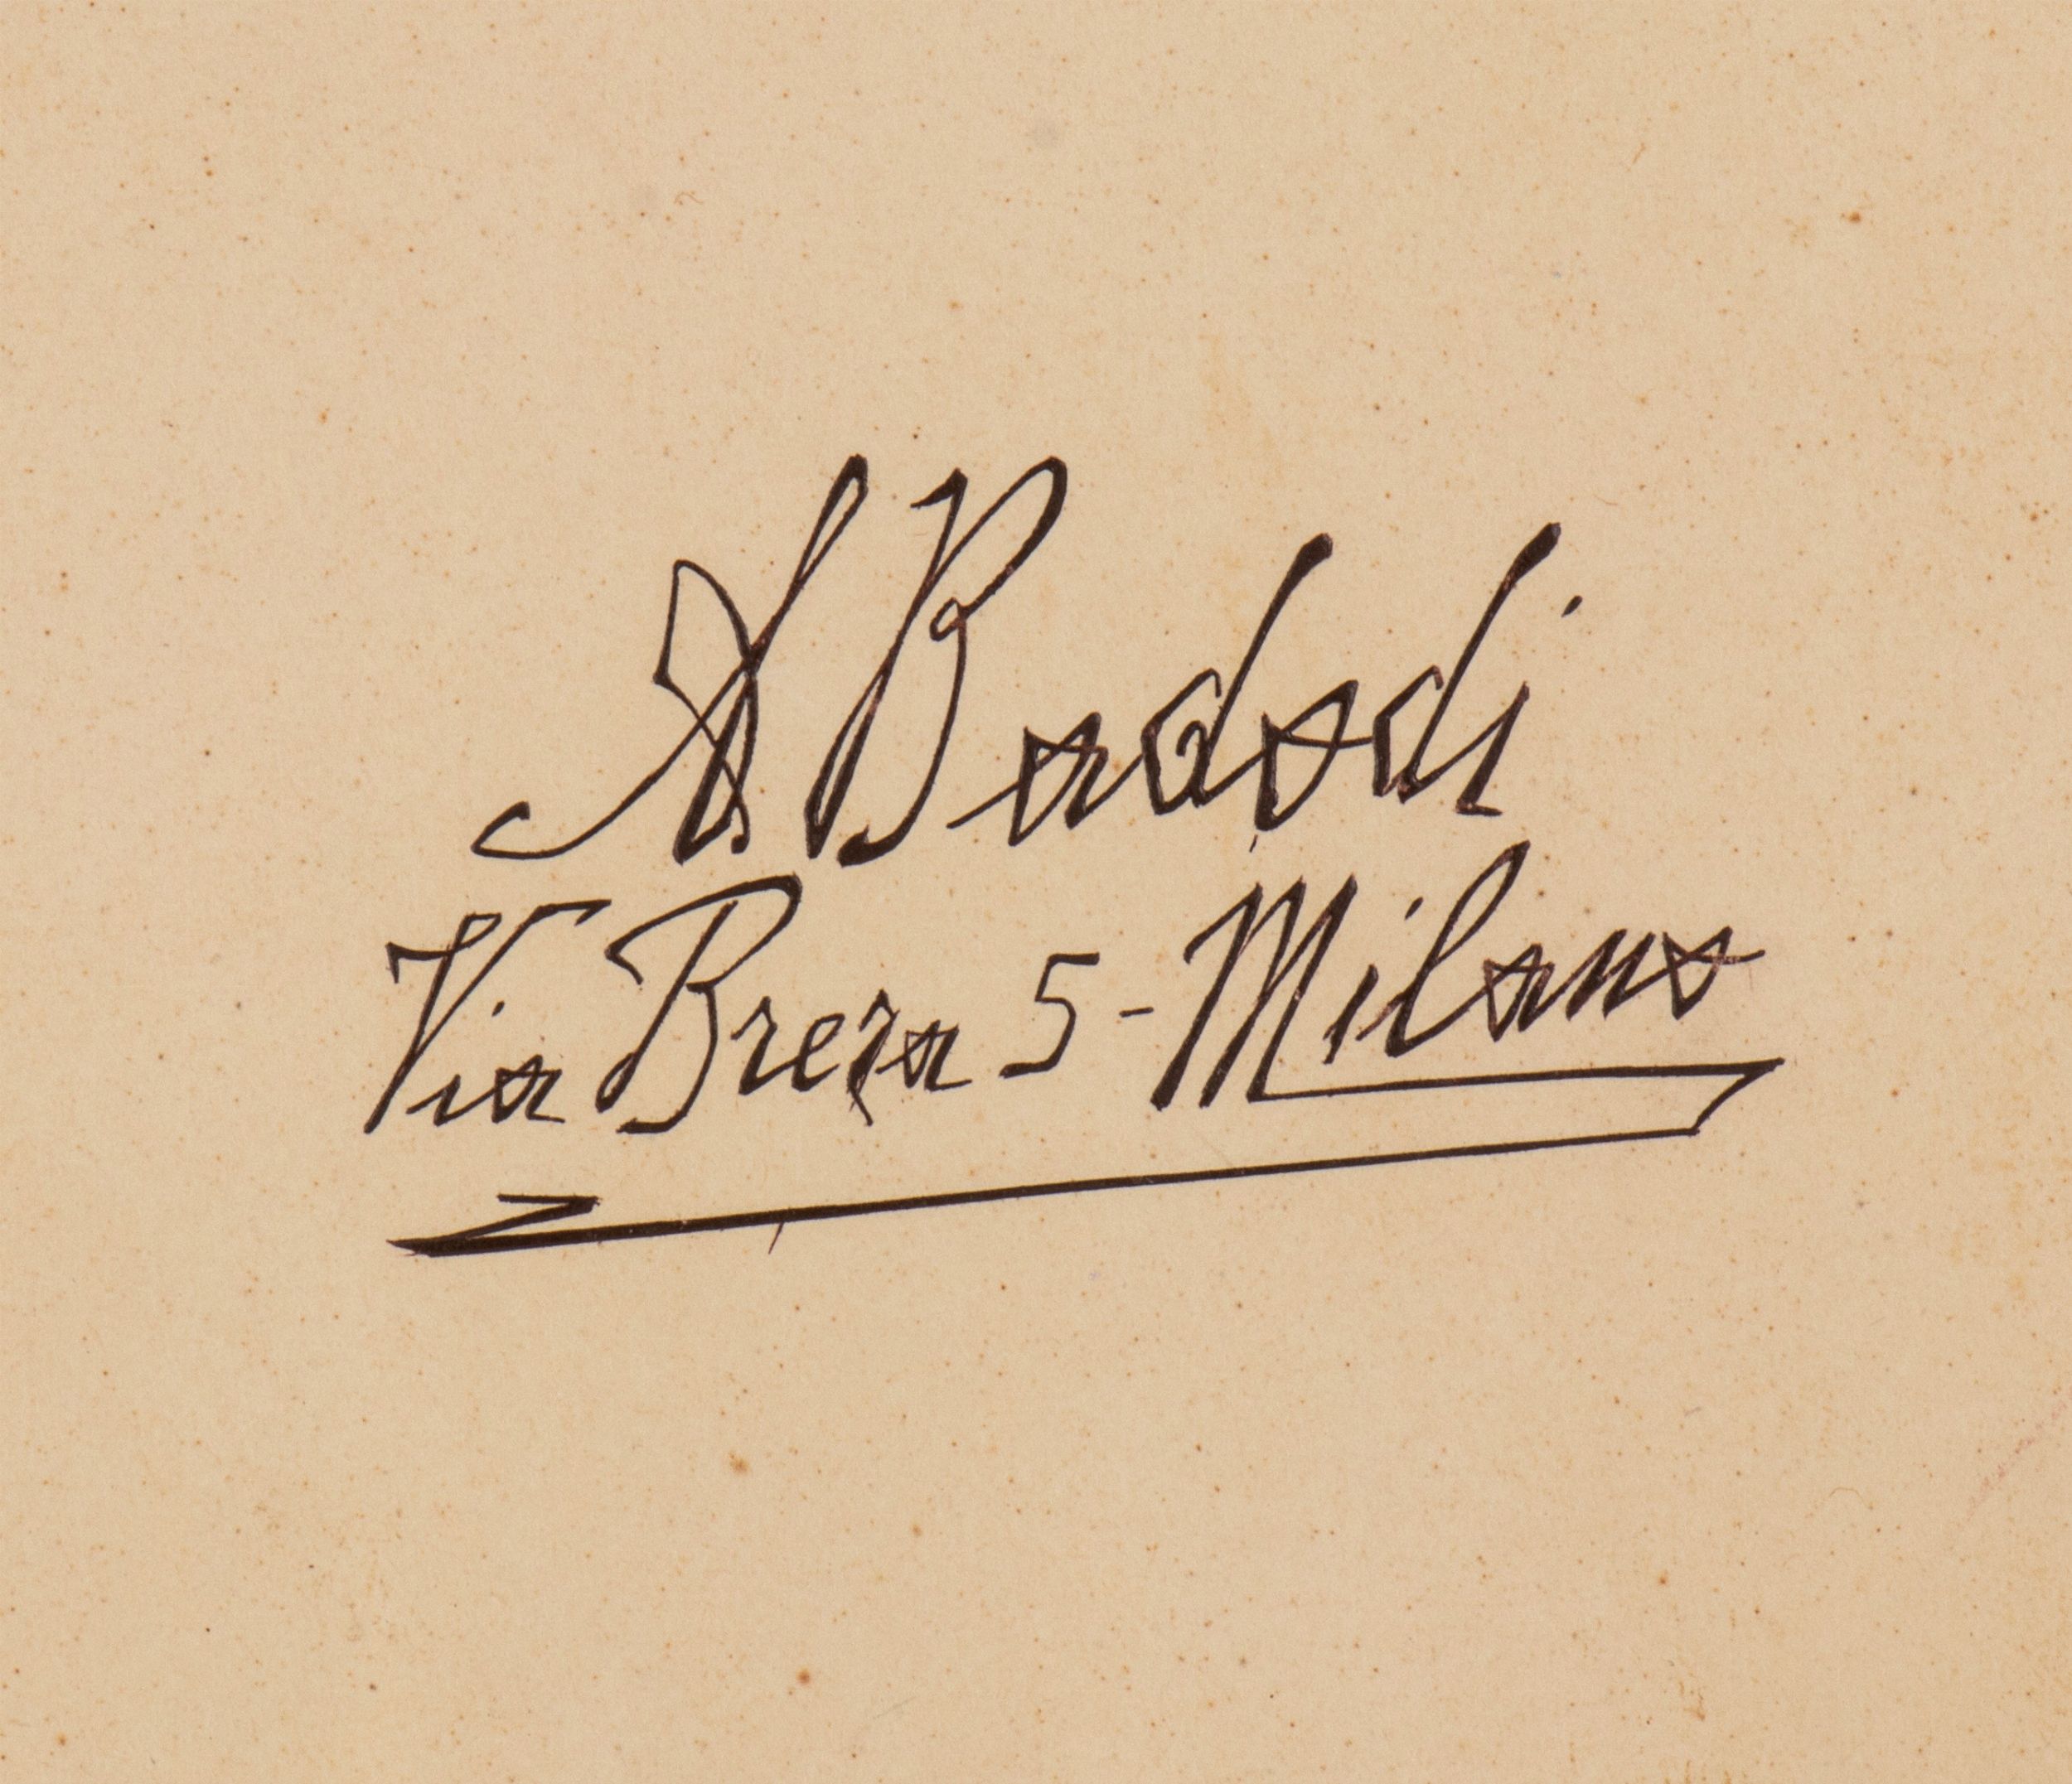 A. Badodi
Via Brera 5 - Milano